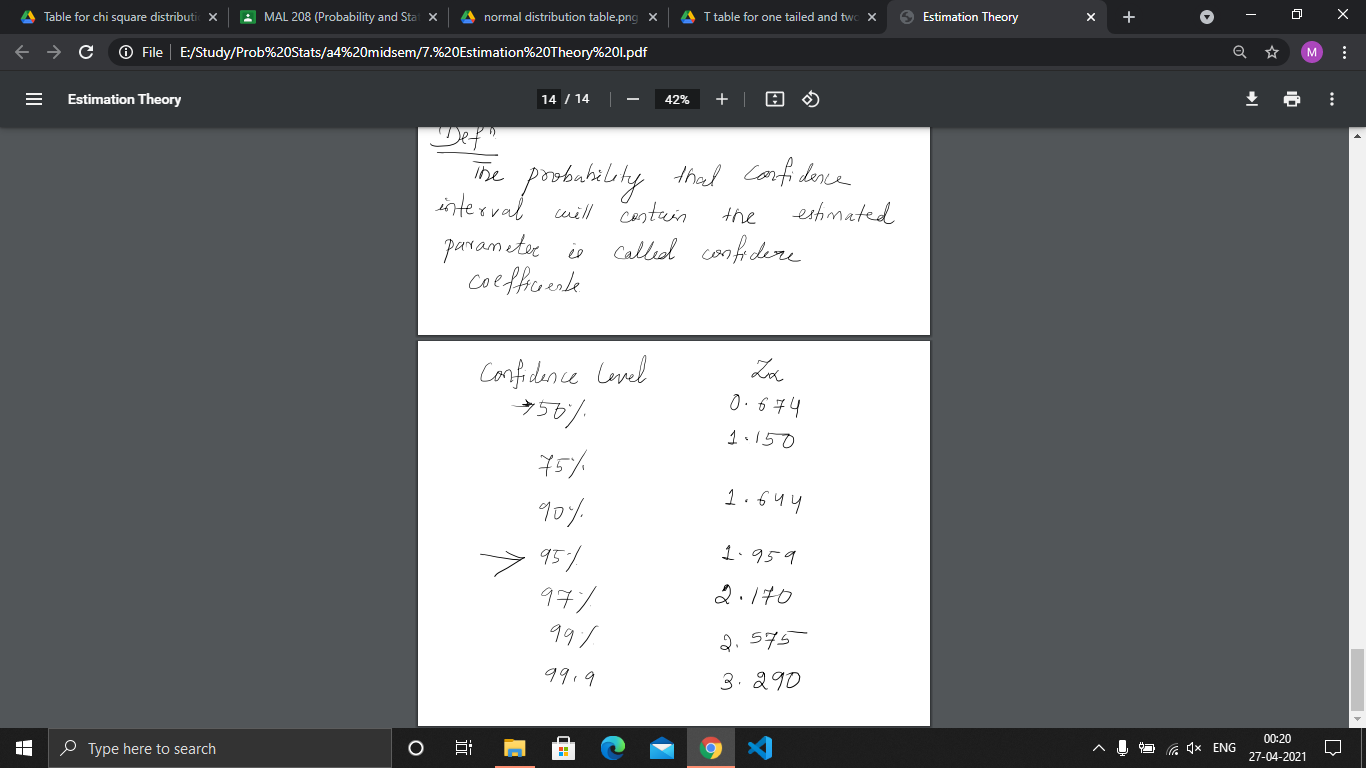 Table for chi square distributi
MAL 208 (Probability and Sta
normal distribution table.png
T table for one tailed and two
Estimation Theory
File
E:/Study/Prob%20Stats/a4%20midsem/7.%20Estimation%20Theory%20I.pdf
M
Estimation Theory
14 / 14
42%
Defn
The probability that confidence
interval will contain the estimated
parameter is called confidence
coefficients
Confidence level Zα
50% 0.674
1.150
75%
90% 1.644
95% 1.959
97% 2.170
99% 2.575
99.9 3.290
Type here to search
ENG
00:20
27-04-2021